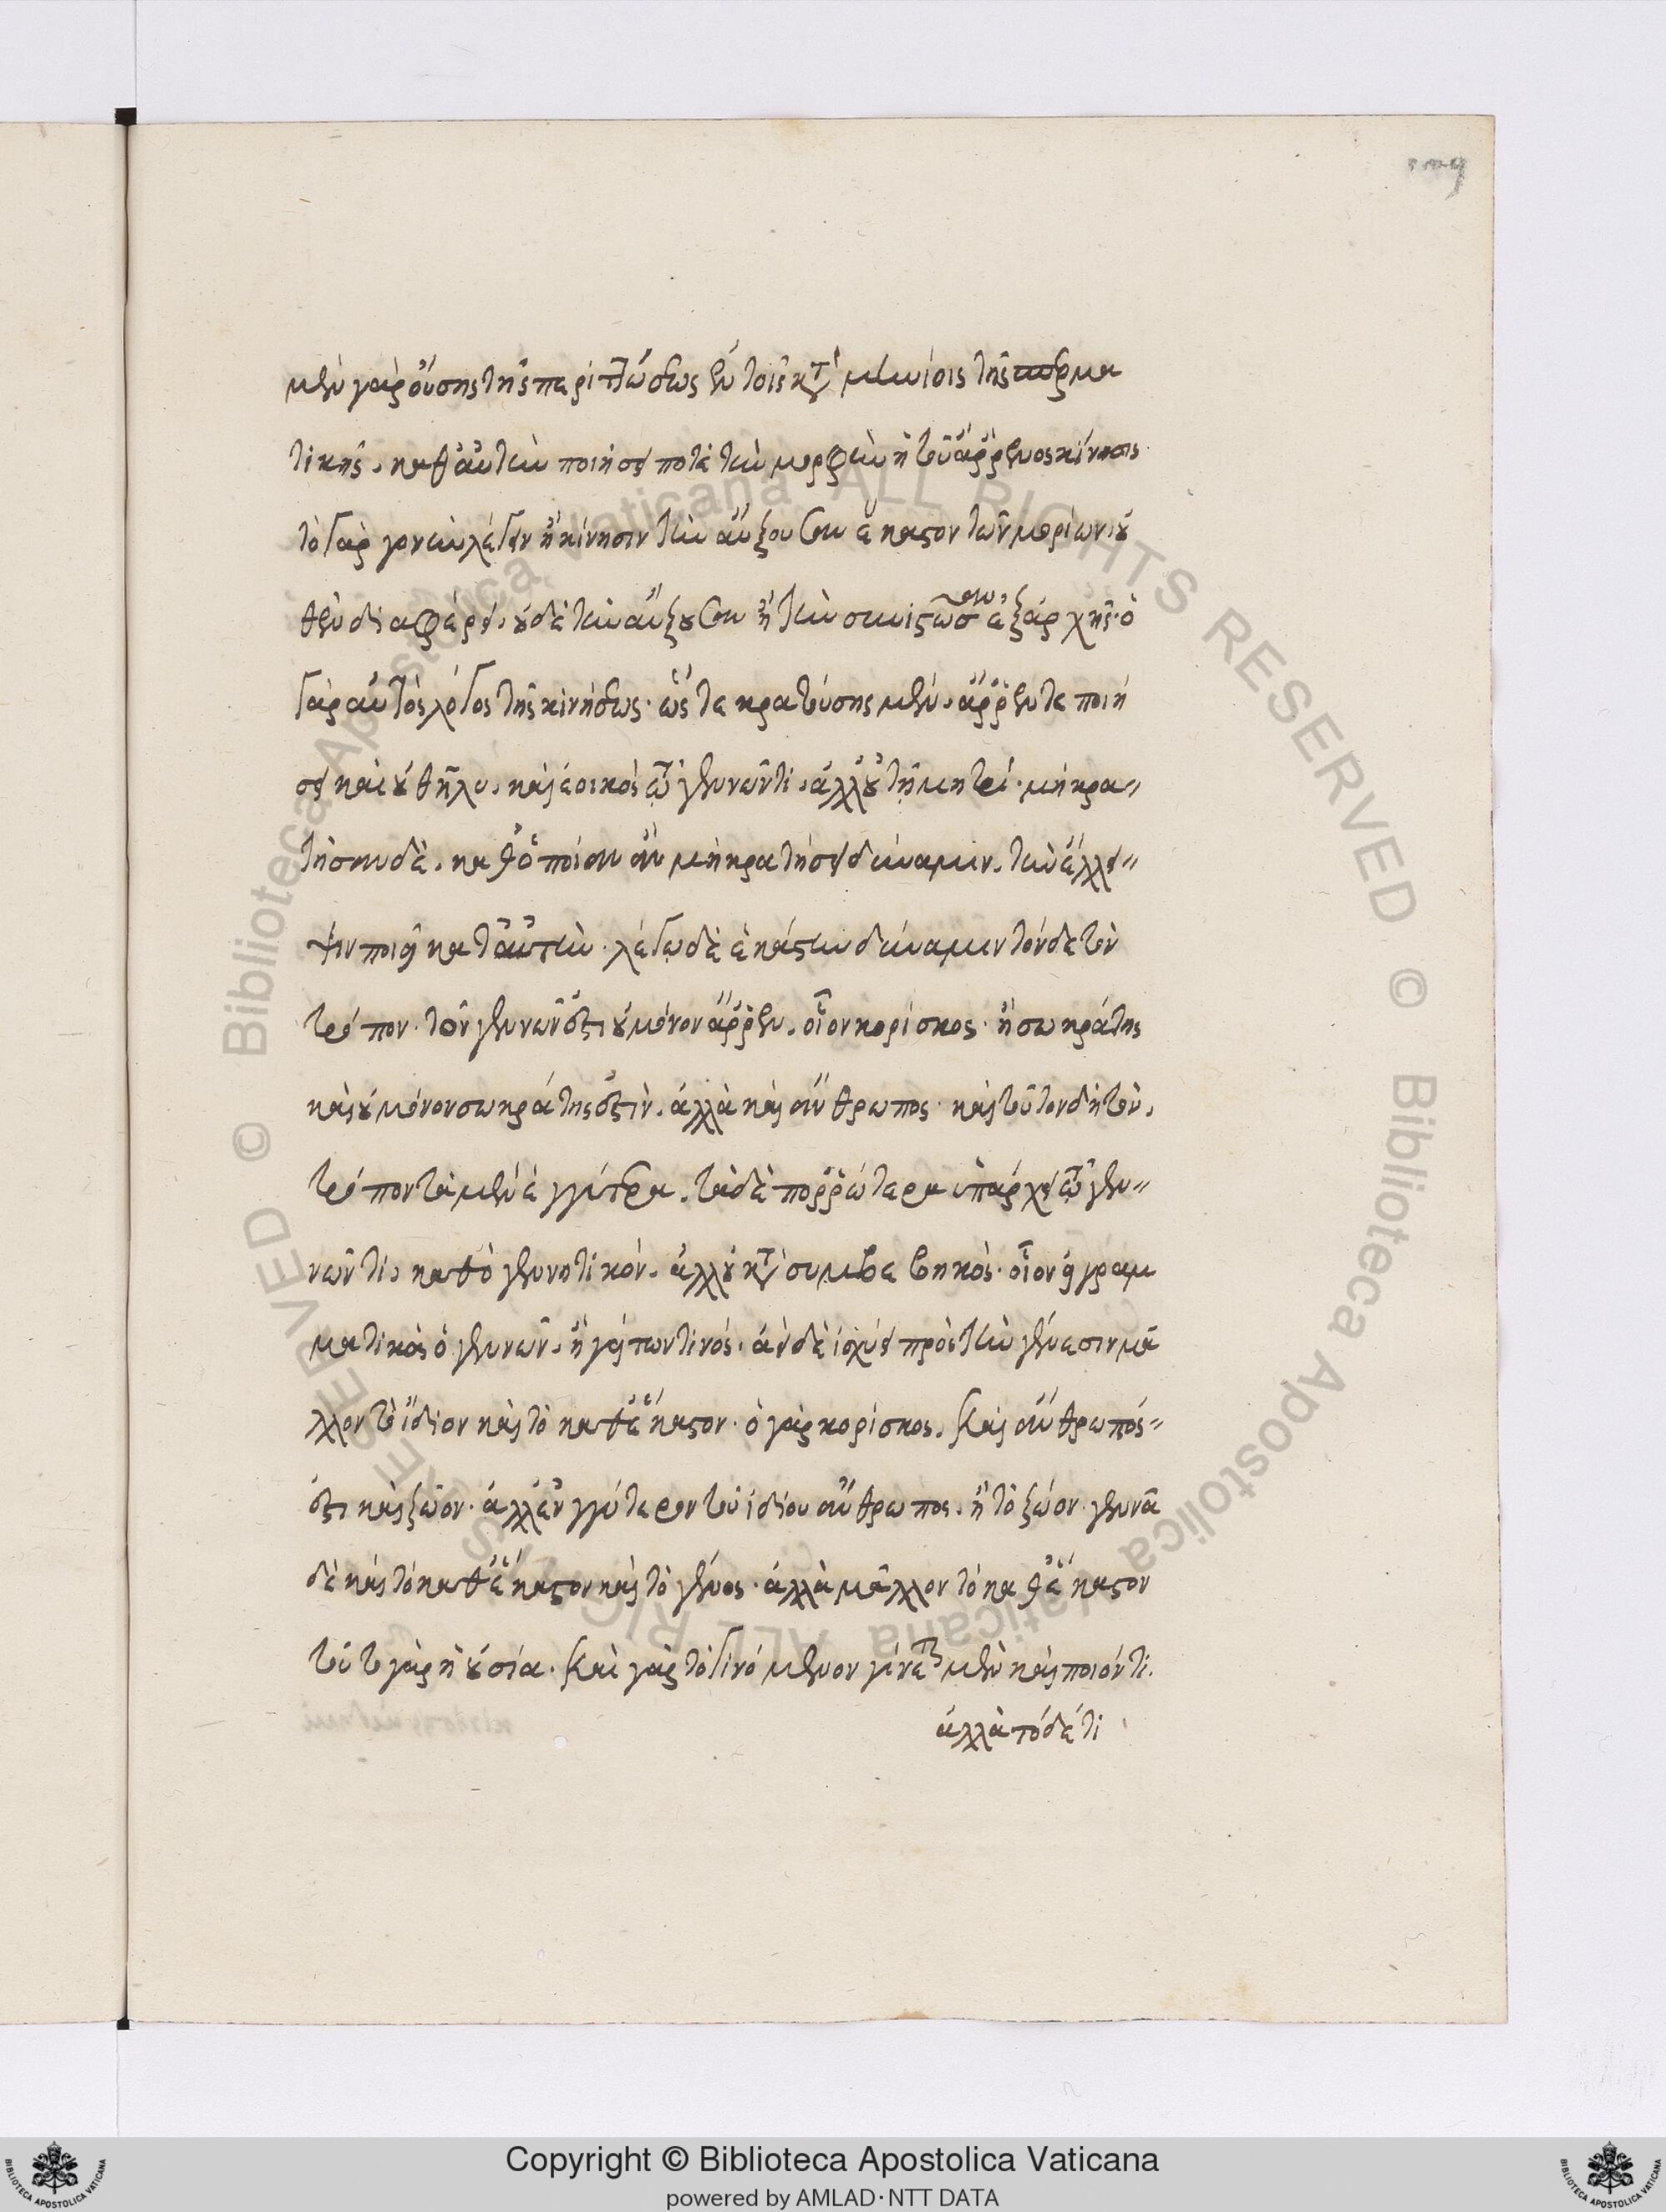 μὲν γὰρ οὔσης τῆς περιττώσεως ἐν τοῖς κατὰ μηνίοις τῆς σπερμα
τικῆς, καθ' αὑτὴν ποιήσει ποτὲ τὴν μορφὴν ἡ τοῦ ἄῤῥενος κίνησις·
τὸ γὰρ γονὴν λέγειν ἢ κίνησιν τὴν αὔξουσαν ἕκαστον τῶν μορίων οὐ
θὲν διαφέρει, οὐδὲ τὴν αὔξουσαν ἢ τὴν συνιστῶσαν ἐξ ἀρχῆς· ὁ
γὰρ αὐτὸς λόγος τῆς κινήσεως· ὥστε κρατούσης μὲν, ἄῤῥεν τε ποιή
σει καὶ οὐ θῆλυ, καὶ ἐοικὸς τῷ γεννῶντι, ἀλλ' οὐ τῇ μητρί· μὴ κρα
τῆσαν δὲ, καθ' ὁποίαν ἂν μὴ κρατήσει δύναμιν, τὴν ἔλλει
ψιν ποιεῖ κατ' αὐτὴν· λέγω δὲ ἑκάστην δύναμιν τόνδε τὸν
τρόπον· τὸν γεννῶν ἐστὶ οὐ μόνον ἄῤῥεν, οἷον κορίσκος· ἢ σωκράτης
καὶ οὐ μόνον σωκράτης ἐστὶν, ἀλλὰ καὶ ἄνθρωπος· καὶ τοῦτον δὴ τὸν,
τρόπον τὰ μὲν ἐγγύτερα, τὰ δὲ ποῤῥώτερα ὑπάρχει τῷ γεν
νῶντι, καθὸ γεννητικόν, ἀλλ' οὐ κατὰ συμβεβηκὸς· οἷον εἰ γραμ
ματικὸς ὁ γεννῶν, ἢ γείτων τινός· ἀεὶ δὲ ἰσχύει πρὸς τὴν γένεσιν μᾶ
λλον τὸ ἴδιον καὶ τὸ καθ' ἕκαστον· ὁ γὰρ κορίσκος, καὶ ἄνθρωπός
ἐστι καὶ ζῷον· ἀλλ' ἐγγύτερον τοῦ ἰδίου ἄνθρωπος, ἢ τὸ ζῷον· γεννᾶ
δὲ καὶ τὸ καθ' ἕκαστον καὶ τὸ γένος· ἀλλὰ μᾶλλον τὸ καθ' ἕκαστον
τοῦτο γὰρ ἡ οὐσία· καὶ γὰρ τὸ γινόμενον γίνεται μὲν καὶ ποιόν τι.
ἀλλὰ τόδε τι
Copyright © Biblioteca Apostolica Vaticana
powered by AMLAD·NTT DATA